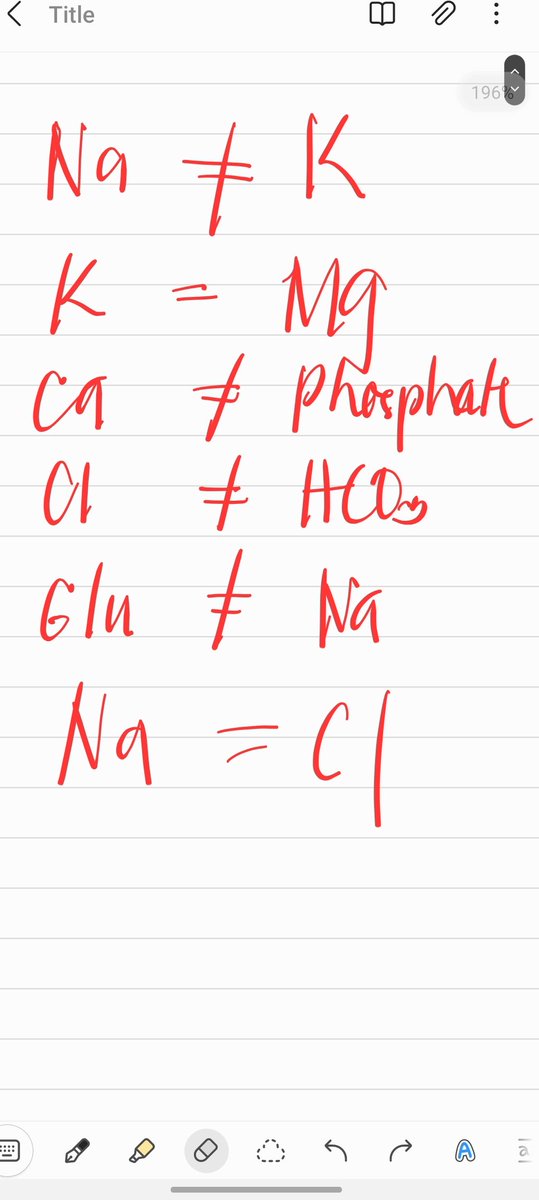 Title
196%
Na ≠ K
K = Mg
Ca ≠ phosphate
Cl ≠ HCO3
Glu ≠ Na
Na = Cl
A
a